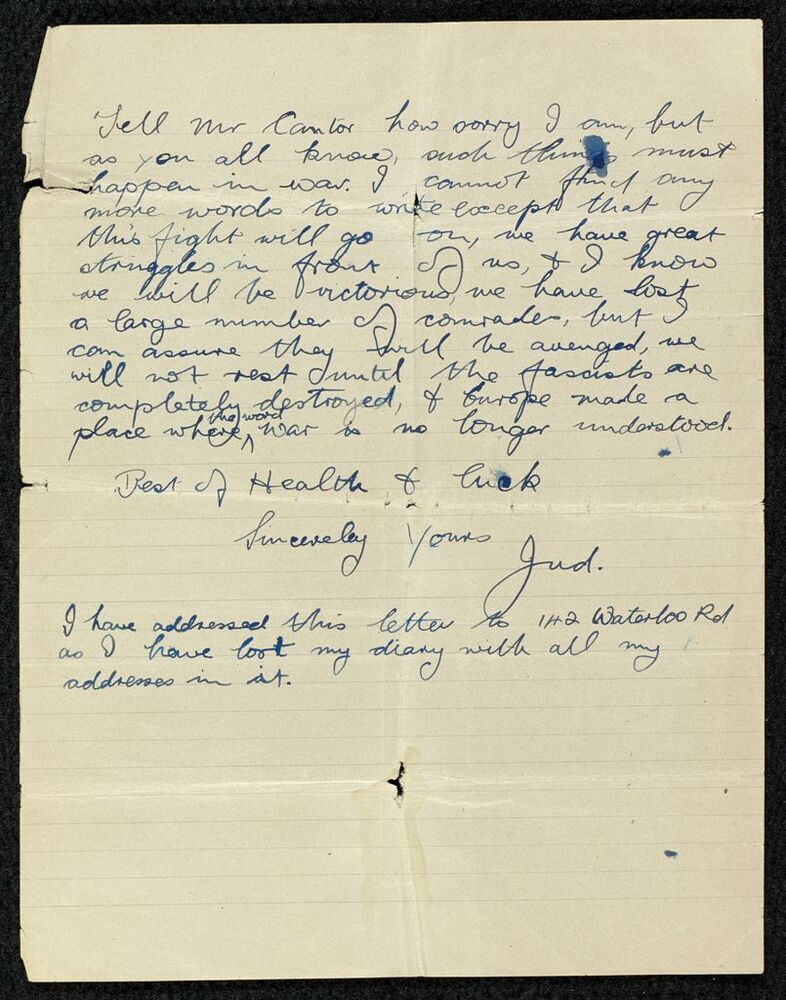 Tell Mr Cantor how sorry I am, but
as you all know, such things must
happen in war. I cannot find any
more words to write except that
this fight will go on, we have great
struggles in front of us, & I know
we will be victorious, we have lost
a large number of comrades, but I
can assure they will be avenged, we
will not rest until the fascists are
completely destroyed, & Europe made a
place where, the word War is no longer understood.
Best of Health & luck
Sincereley Yours
Jud.
I have addressed this letter to 142 Waterloo Rd
as I have lost my diary with all my
addresses in it.